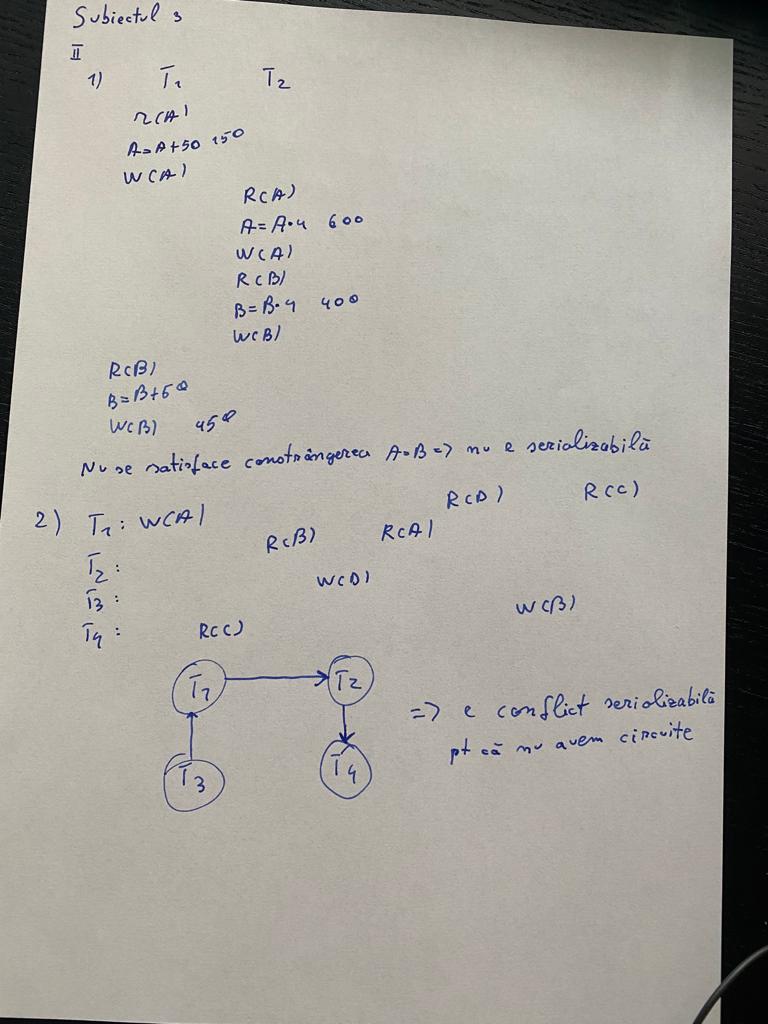 Subiectul 3
II
1) T1 T2
R(A)
A=A+50 150
W(A)
R(A)
A=A·4 600
W(A)
R(B)
B=B·4 400
W(B)
R(B)
B=B+50
W(B) 450
Nu se satisface constrângerea A=B => nu e serializabilă
2) T1: W(A) R(D) R(C)
T2: R(B) R(A)
T3: W(D)
T4: R(C) W(B)
T1 T2
=> e conflict serializabilă
pt că nu avem circuite
T3 T4